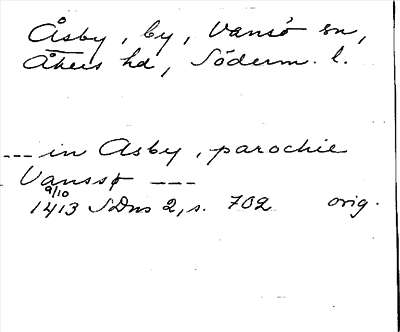 Åsby, by, Vansö sn,
Åkers hd, Söderm. l.
--- in Asby, parochie
Vanssø ---
9/10
1413 SDns 2, s. 702 orig.